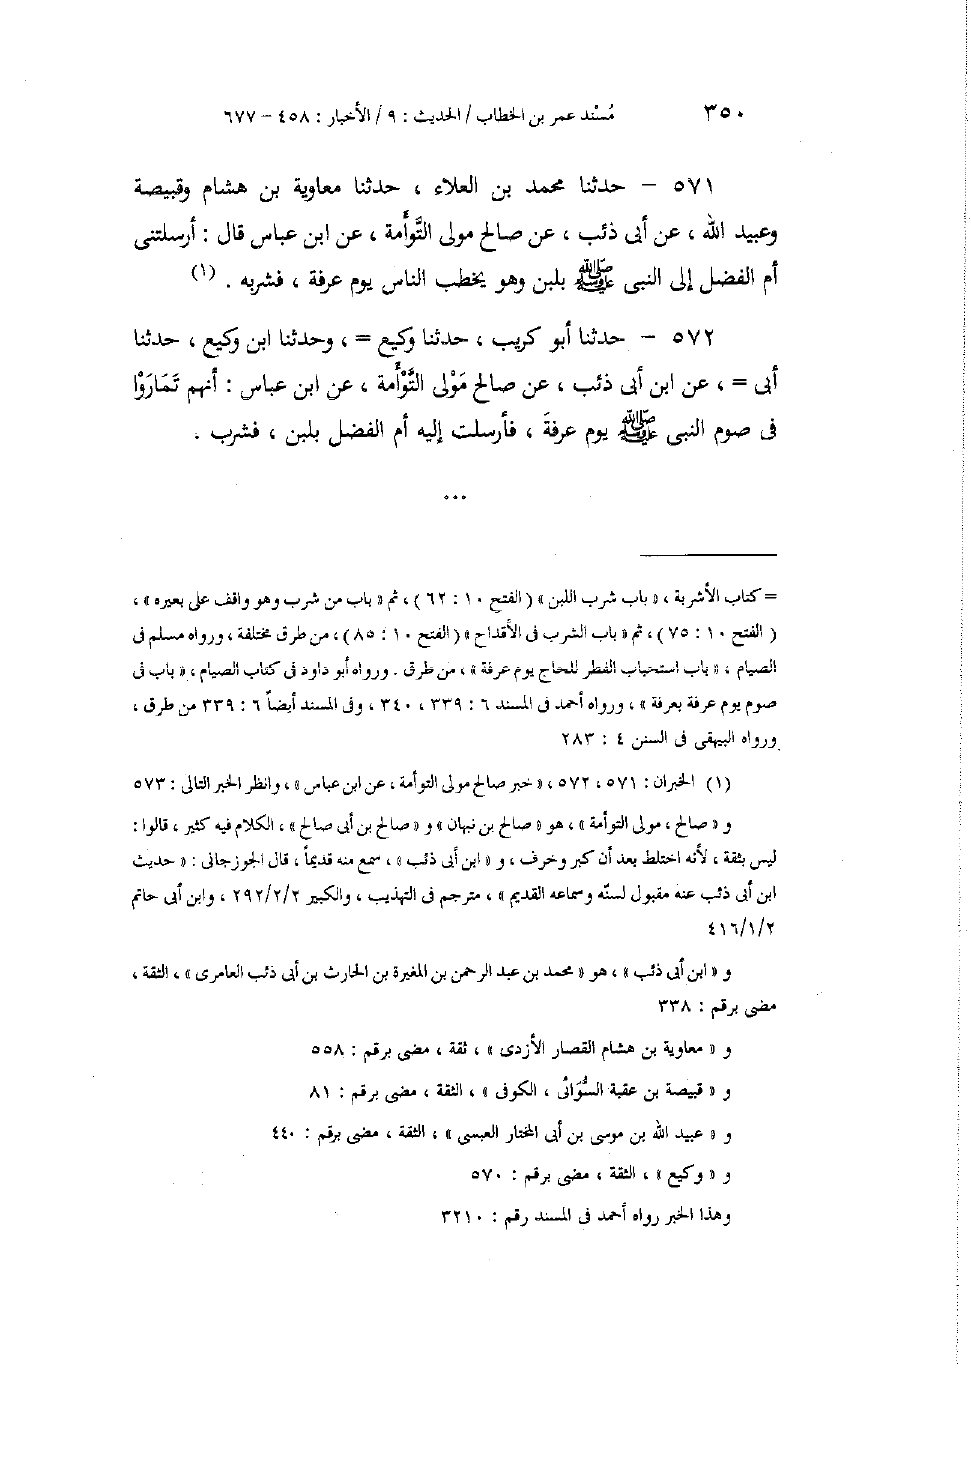 ٣٥٠ مُسْند عمر بن الخطاب / الحديث : ٩ / الأخبار : ٤٥٨ – ٦٧٧
٥٧١ – حدثنا محمد بن العلاء ، حدثنا معاوية بن هشام وقبيصة
وعبيد الله ، عن أبى ذئب ، عن صالح مولى التَّوأَمة ، عن ابن عباس قال : أرسلتنى
أم الفضل إلى النبى ﷺ بلبن وهو يخطب الناس يوم عرفة ، فشربه . (١)
٥٧٢ – حدثنا أبو كريب ، حدثنا وكيع = ، وحدثنا ابن وكيع ، حدثنا
أبى = ، عن ابن أبى ذئب ، عن صالح مَوْلى التَّوْأَمة ، عن ابن عباس : أنهم تَمَارَوْا
فى صوم النبى ﷺ يوم عرفةَ ، فأرسلت إليه أم الفضل بلبن ، فشرب .
...
= كتاب الأشربة ، « باب شرب اللبن » ( الفتح ١٠ : ٦٢ ) ، ثم « باب من شرب وهو واقف على بعيره » ،
( الفتح ١٠ : ٧٥ ) ، ثم « باب الشرب فى الأقداح » ( الفتح ١٠ : ٨٥ ) ، من طرق مختلفة ، ورواه مسلم فى
الصيام ، « باب استحباب الفطر للحاج يوم عرفة » ، من طرق . ورواه أبو داود فى كتاب الصيام ، « باب فى
صوم يوم عرفة بعرفة » ، ورواه أحمد فى المسند ٦ : ٣٣٩ ، ٣٤٠ ، وفى المسند أيضاً ٦ : ٣٣٩ من طرق ،
ورواه البيهقى فى السنن ٤ : ٢٨٣
(١) الخبران : ٥٧١ ، ٥٧٢ ، « خبر صالح مولى التوأمة ، عن ابن عباس » ، وانظر الخبر التالى : ٥٧٣
و « صالح ، مولى التوأمة » ، هو « صالح بن نبهان » و « صالح بن أبى صالح » ، الكلام فيه كثير ، قالوا :
ليس بثقة ، لأنه اختلط بعد أن كبر وخرف ، و « ابن أبى ذئب » ، سمع منه قديماً ، قال الجوزجانى : « حديث
ابن أبى ذئب عنه مقبول لسنّه وسماعه القديم » ، مترجم فى التهذيب ، والكبير ٢٩٢/٢/٢ ، وابن أبى حاتم
٤١٦/١/٢
و « ابن أبى ذئب » ، هو « محمد بن عبد الرحمن بن المغيرة بن الحارث بن أبى ذئب العامرى » ، الثقة ،
مضى برقم : ٣٣٨
و « معاوية بن هشام القصار الأزدى » ، ثقة ، مضى برقم : ٥٥٨
و « قبيصة بن عقبة السُّوَائى ، الكوفى » ، الثقة ، مضى برقم : ٨١
و « عبيد الله بن موسى بن أبى المختار العبسى » ، الثقة ، مضى برقم : ٤٤٠
و « وكيع » ، الثقة ، مضى برقم : ٥٧٠
وهذا الخبر رواه أحمد فى المسند رقم : ٣٢١٠